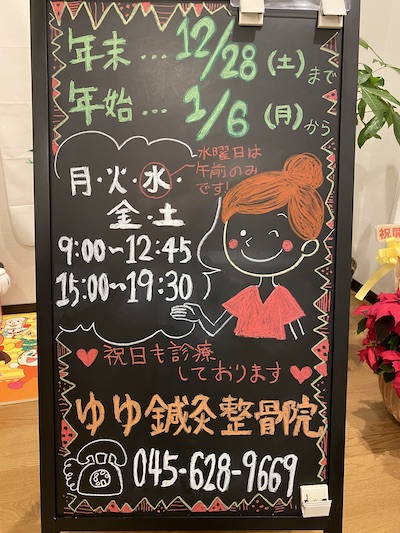 年末…12/28(土)まで
年始…1/6(月)から
水曜日は
午前のみ
です!
月・火・水・
金・土
9:00~12:45
15:00~19:30
祝日も診療
しております
ゆゆ鍼灸整骨院
045-628-9669
祝開